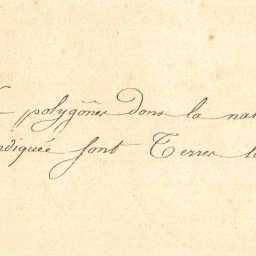 polygônes dons la na
ndiquée sont Terres l